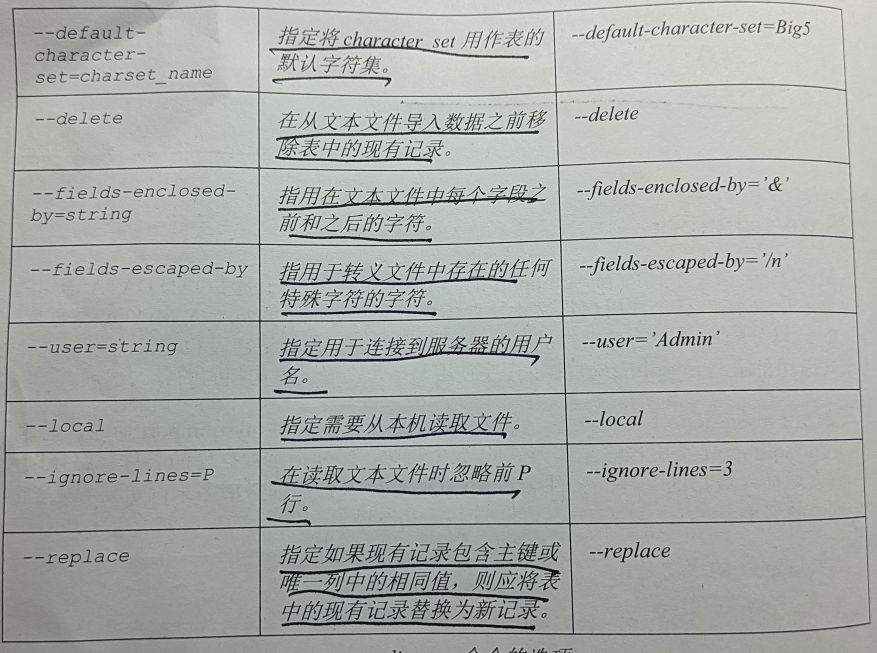 --default-
character-
set=charset_name
指定将 character set 用作表的
默认字符集。
--default-character-set=Big5
--delete
在从文本文件导入数据之前移
除表中的现有记录。
--delete
--fields-enclosed-
by=string
指用在文本文件中每个字段之
前和之后的字符。
--fields-enclosed-by='&'
--fields-escaped-by
指用于转义文件中存在的任何
特殊字符的字符。
--fields-escaped-by='/n'
--user=string
指定用于连接到服务器的用户
名。
--user='Admin'
--local
指定需要从本机读取文件。
--local
--ignore-lines=P
在读取文本文件时忽略前 P
行。
--ignore-lines=3
--replace
指定如果现有记录包含主键或
唯一列中的相同值，则应将表
中的现有记录替换为新记录。
--replace